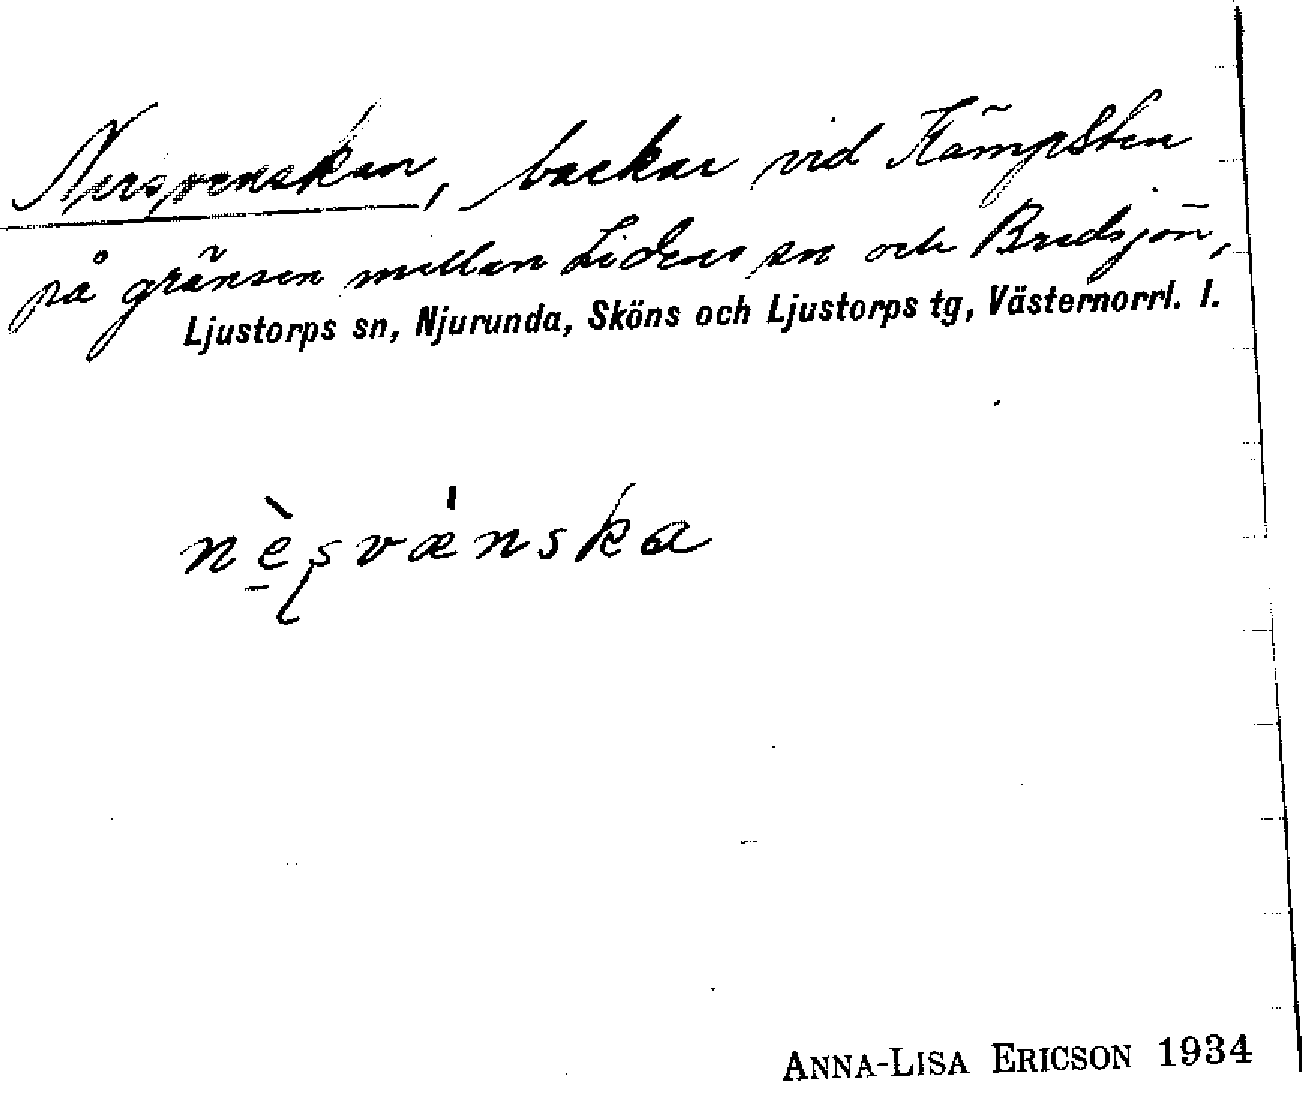 Nersvenskan, backar vid Kämpsten
på gränsen mellan Lidens sn och Bredsjön,
Ljustorps sn, Njurunda, Sköns och Ljustorps tg, Västernorrl. l.
nè̱ʂvǽnska
ANNA-LISA ERICSON 1934